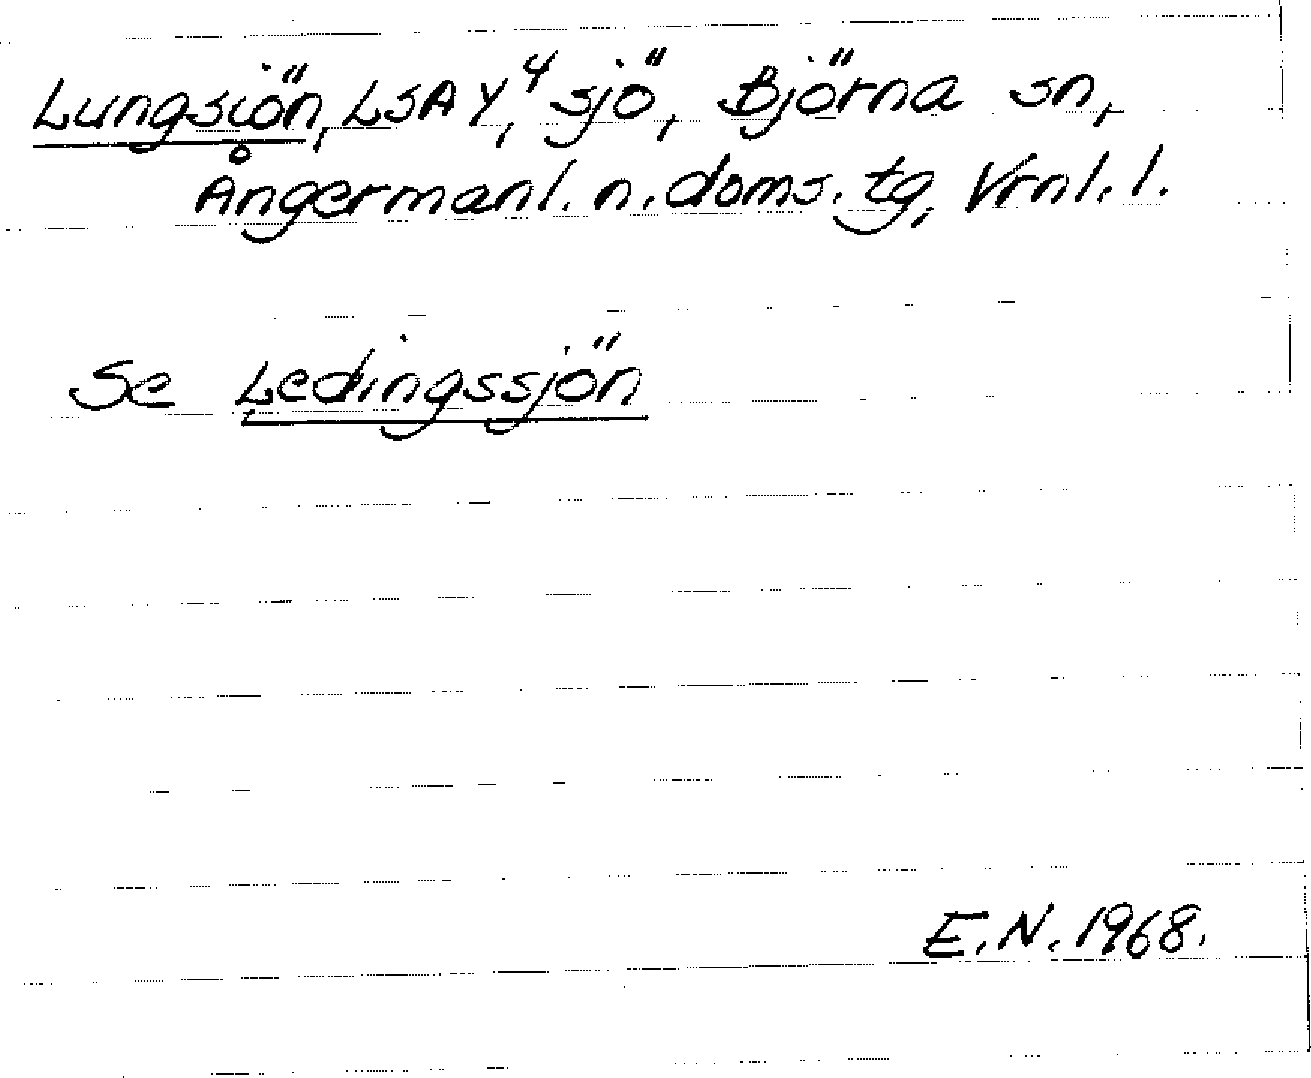 Lungsjön, LSA Y,⁴ sjö, Björna sn,
Ångermanl. n. doms. tg, Vrnl. l.
Se Ledingssjön
E.N. 1968.